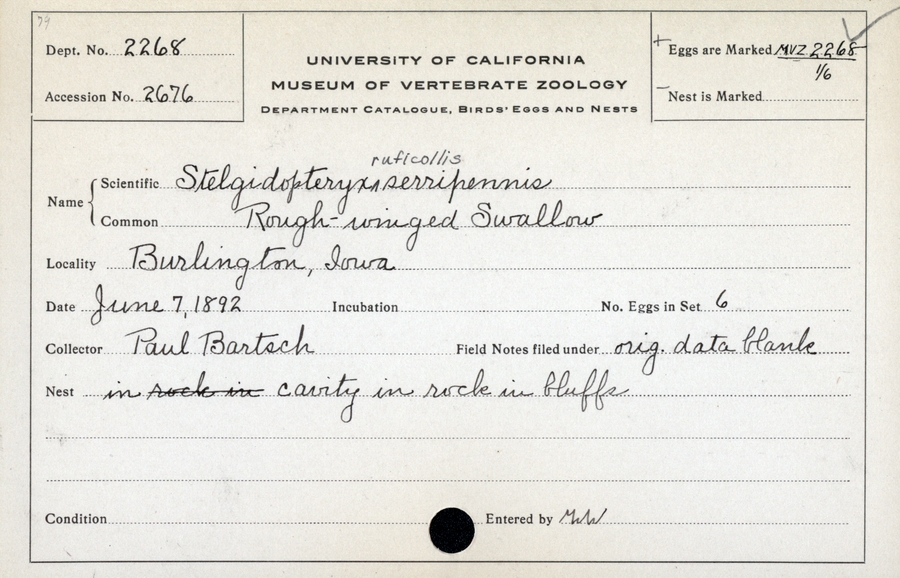 79
Dept. No. 2268
Accession No. 2676
UNIVERSITY OF CALIFORNIA
MUSEUM OF VERTEBRATE ZOOLOGY
DEPARTMENT CATALOGUE, BIRDS' EGGS AND NESTS
+ Eggs are Marked MVZ 2268
1/6
– Nest is Marked
ruficollis
Name
Scientific Stelgidopteryx ‸ serripennis
Common Rough-winged Swallow
Locality Burlington, Iowa
Date June 7, 1892 Incubation No. Eggs in Set 6
Collector Paul Bartsch Field Notes filed under orig. data blank
Nest in rock in cavity in rock in bluffs
Condition Entered by